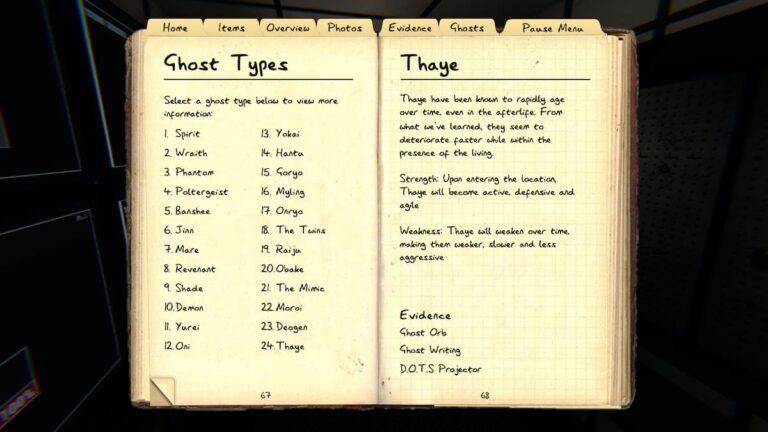 Home Items Overview Photos Evidence Ghosts Pause Menu
Ghost Types
Select a ghost type below to view more
information:
1. Spirit
2. Wraith
3. Phantom
4. Poltergeist
5. Banshee
6. Jinn
7. Mare
8. Revenant
9. Shade
10. Demon
11. Yurei
12. Oni
13. Yokai
14. Hantu
15. Goryo
16. Myling
17. Onryo
18. The Twins
19. Raiju
20. Obake
21. The Mimic
22. Moroi
23. Deogen
24. Thaye
67
Thaye
Thaye have been known to rapidly age
over time, even in the afterlife. From
what we've learned, they seem to
deteriorate faster while within the
presence of the living.
Strength: Upon entering the location,
Thaye will become active, defensive and
agile
Weakness: Thaye will weaken over time,
making them weaker, slower and less
aggressive
Evidence
Ghost Orb
Ghost Writing
D.O.T.S Projector
68